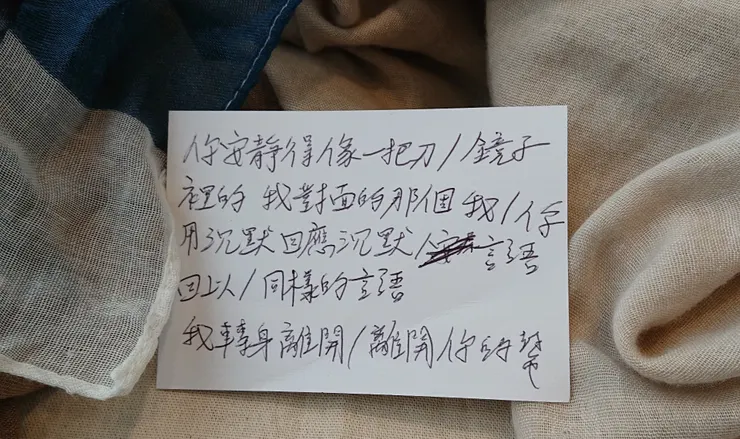 你安靜得像一把刀/鏡子
裡的 我對面的那個我/你
用沉默回應沉默/言語
回以/同樣的言語
我轉身離開/離開你